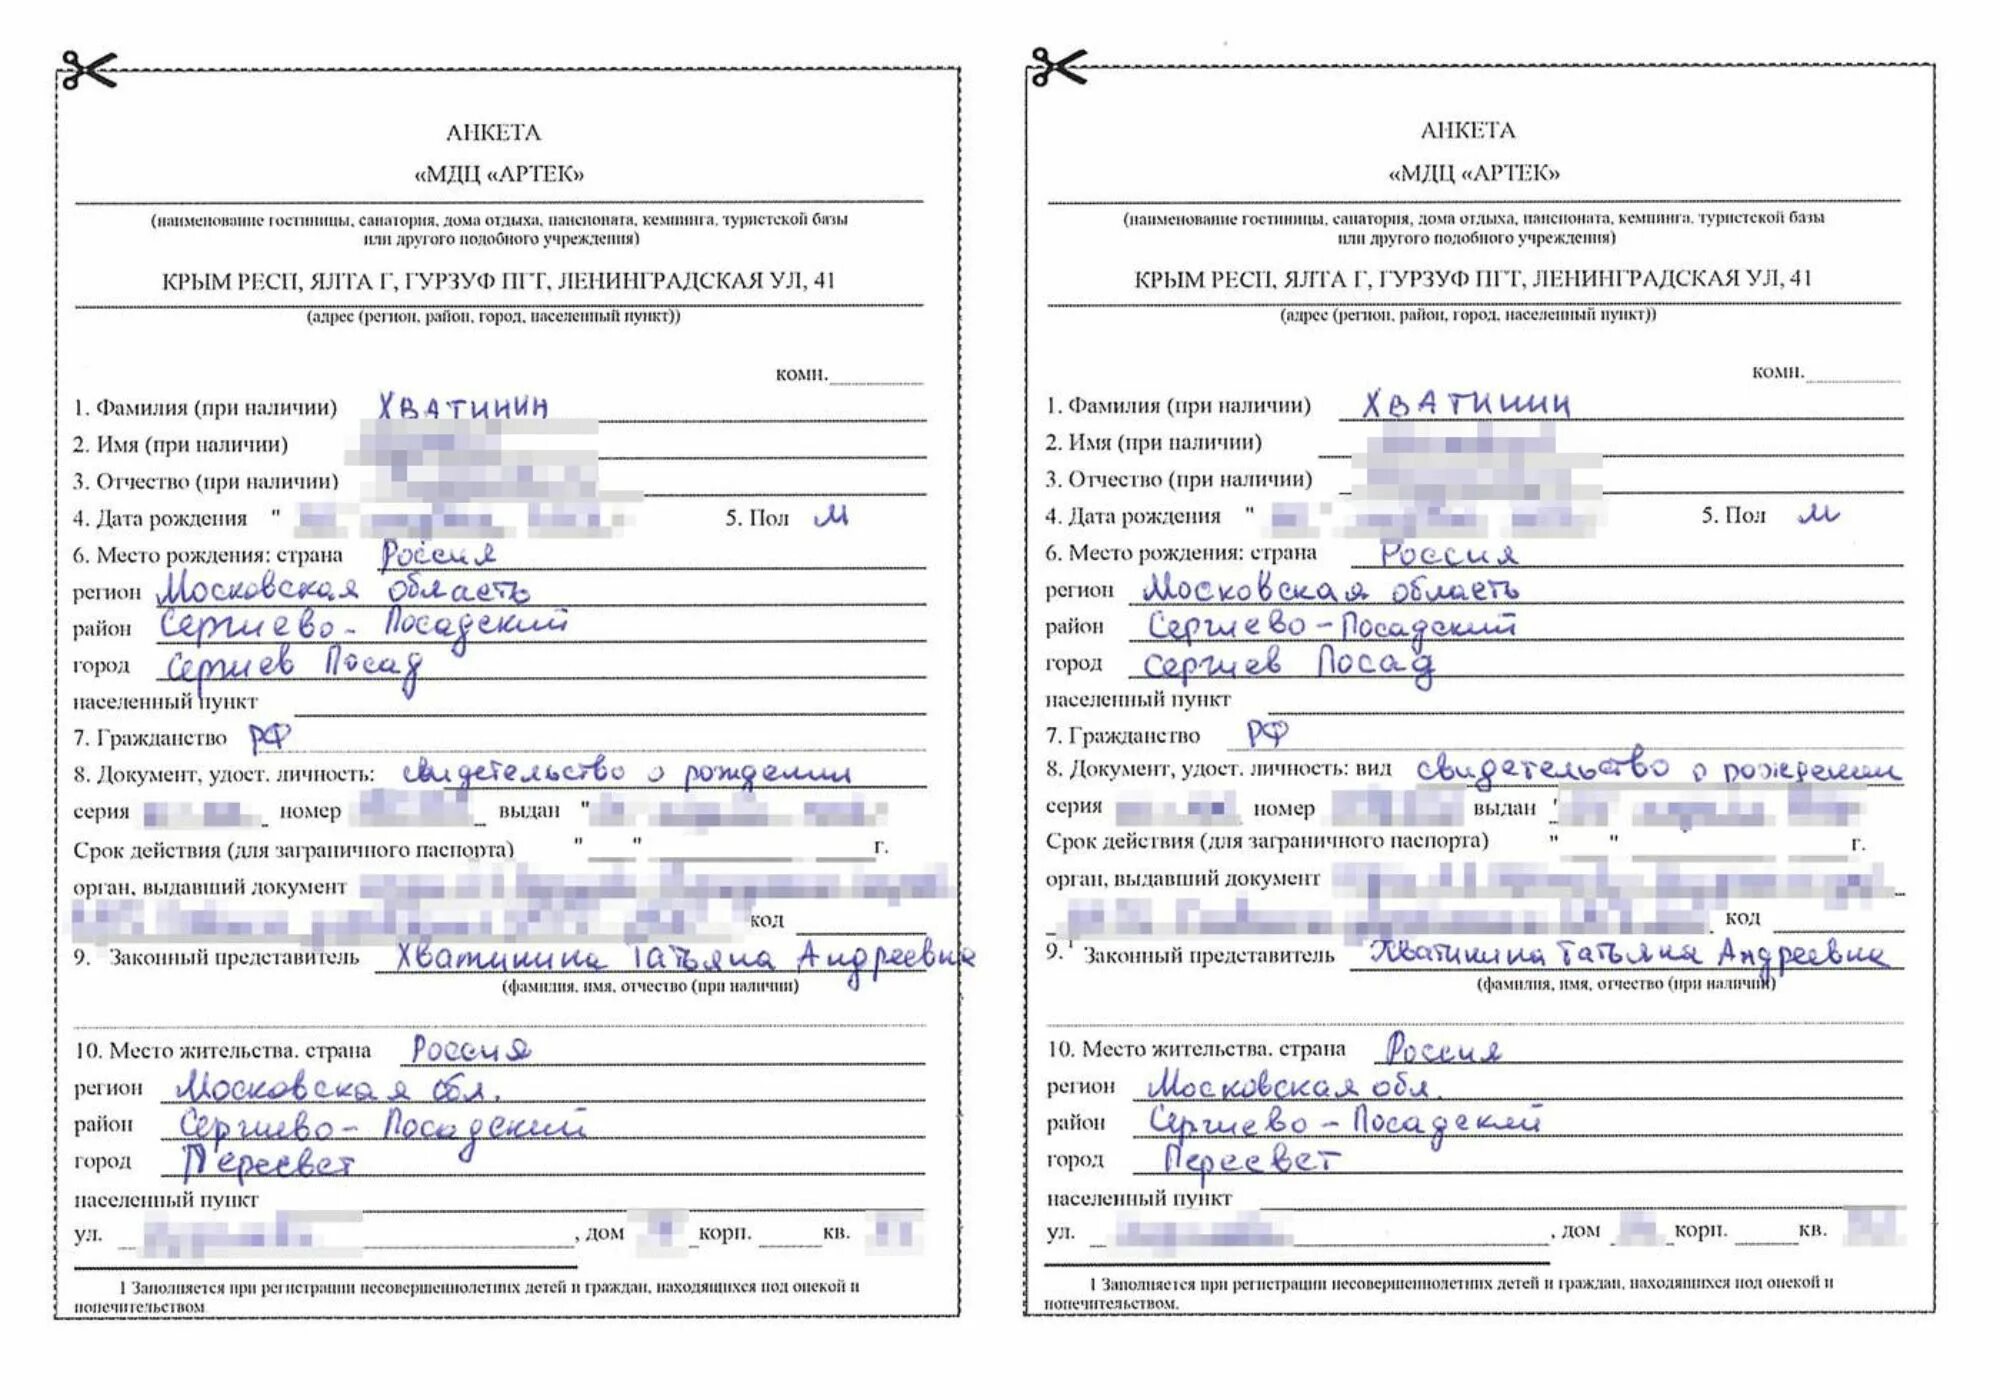 АНКЕТА
«МДЦ «АРТЕК»
(наименование гостиницы, санатория, дома отдыха, пансионата, кемпинга, туристской базы
или другого подобного учреждения)
КРЫМ РЕСП, ЯЛТА Г, ГУРЗУФ ПГТ, ЛЕНИНГРАДСКАЯ УЛ, 41
(адрес (регион, район, город, населенный пункт))
комн.
1. Фамилия (при наличии) ХВАТИНИН
2. Имя (при наличии)
3. Отчество (при наличии)
4. Дата рождения " 5. Пол М
6. Место рождения: страна Россия
регион Московская область
район Сергиево-Посадский
город Сергиев Посад
населенный пункт
7. Гражданство РФ
8. Документ, удост. личность: свидетельство о рождении
серия номер выдан "
Срок действия (для заграничного паспорта) " " г.
орган, выдавший документ
код
9. Законный представитель Хватинина Татьяна Андреевна
(фамилия, имя, отчество (при наличии)
10. Место жительства. страна Россия
регион Московская обл.
район Сергиево-Посадский
город Пересвет
населенный пункт
ул. , дом корп. кв.
1 Заполняется при регистрации несовершеннолетних детей и граждан, находящихся под опекой и
попечительством
АНКЕТА
«МДЦ «АРТЕК»
(наименование гостиницы, санатория, дома отдыха, пансионата, кемпинга, туристской базы
или другого подобного учреждения)
КРЫМ РЕСП, ЯЛТА Г, ГУРЗУФ ПГТ, ЛЕНИНГРАДСКАЯ УЛ, 41
(адрес (регион, район, город, населенный пункт))
комн.
1. Фамилия (при наличии) ХВАТИНИН
2. Имя (при наличии)
3. Отчество (при наличии)
4. Дата рождения " 5. Пол М
6. Место рождения: страна Россия
регион Московская область
район Сергиево-Посадский
город Сергиев Посад
населенный пункт
7. Гражданство РФ
8. Документ, удост. личность: вид свидетельство о рождении
серия номер выдан "
Срок действия (для заграничного паспорта) " " г.
орган, выдавший документ
код
9.1 Законный представитель Хватинина Татьяна Андреевна
(фамилия, имя, отчество (при наличии)
10. Место жительства. страна Россия
регион Московская обл.
район Сергиево-Посадский
город Пересвет
населенный пункт
ул. , дом корп. кв.
1 Заполняется при регистрации несовершеннолетних детей и граждан, находящихся под опекой и
попечительством.